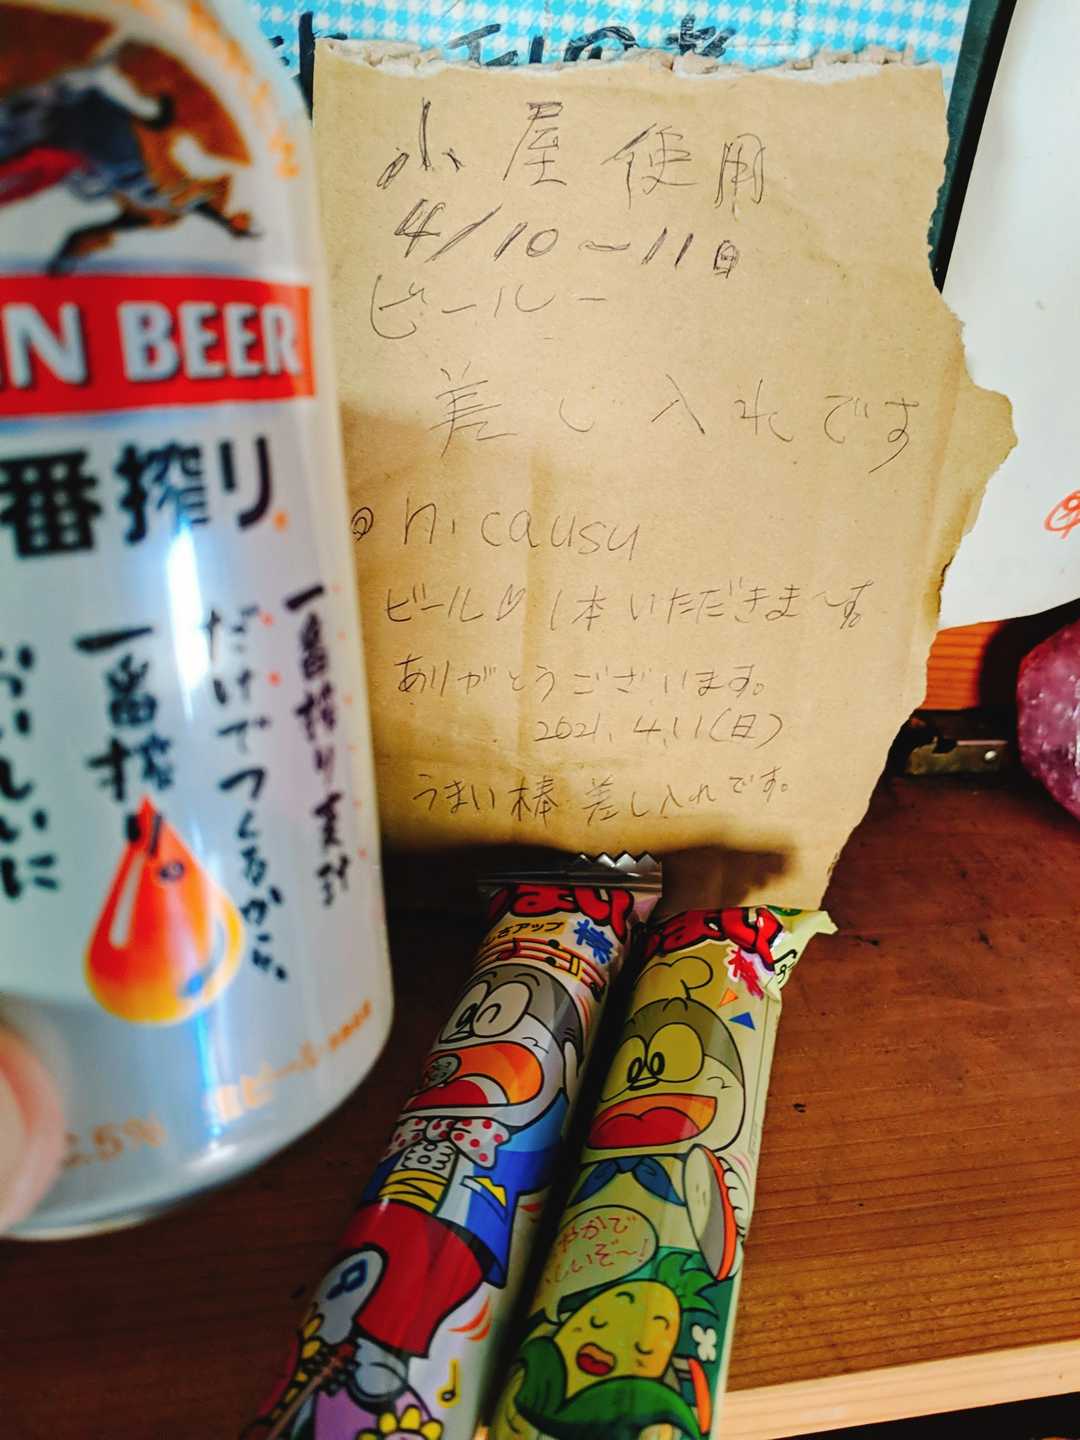 小屋使用
4/10〜11日
ビールー
差し入れです
@nicausu
ビール♡1本いただきま〜す。
ありがとうございます。
2021.4.11(日)
うまい棒 差し入れです。
BEER
番搾り
一番搾り麦汁
だけでつくるから、
一番搾り。
おいしいに
.5%
うまい
棒
アップ
うまい
棒
やかで
しいぞ〜!